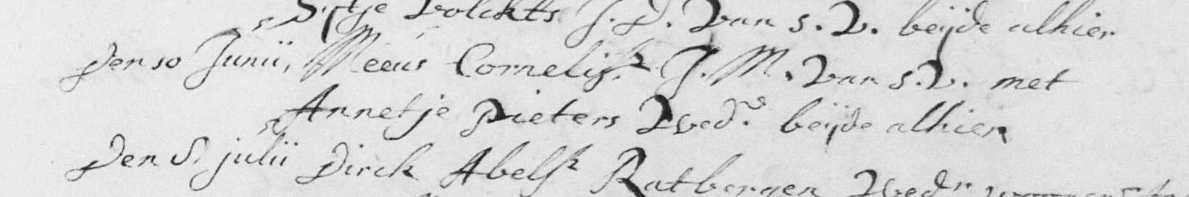 Sijtje Volckts J.D. van s.V. beijde alhier
Den 10 Junii, Meeus Cornelisz J.M. van s.V. met
Annetje Pieters Wed.e beijde alhier
Den 8 julii Dirck Abelsz Ratbergen Wedr